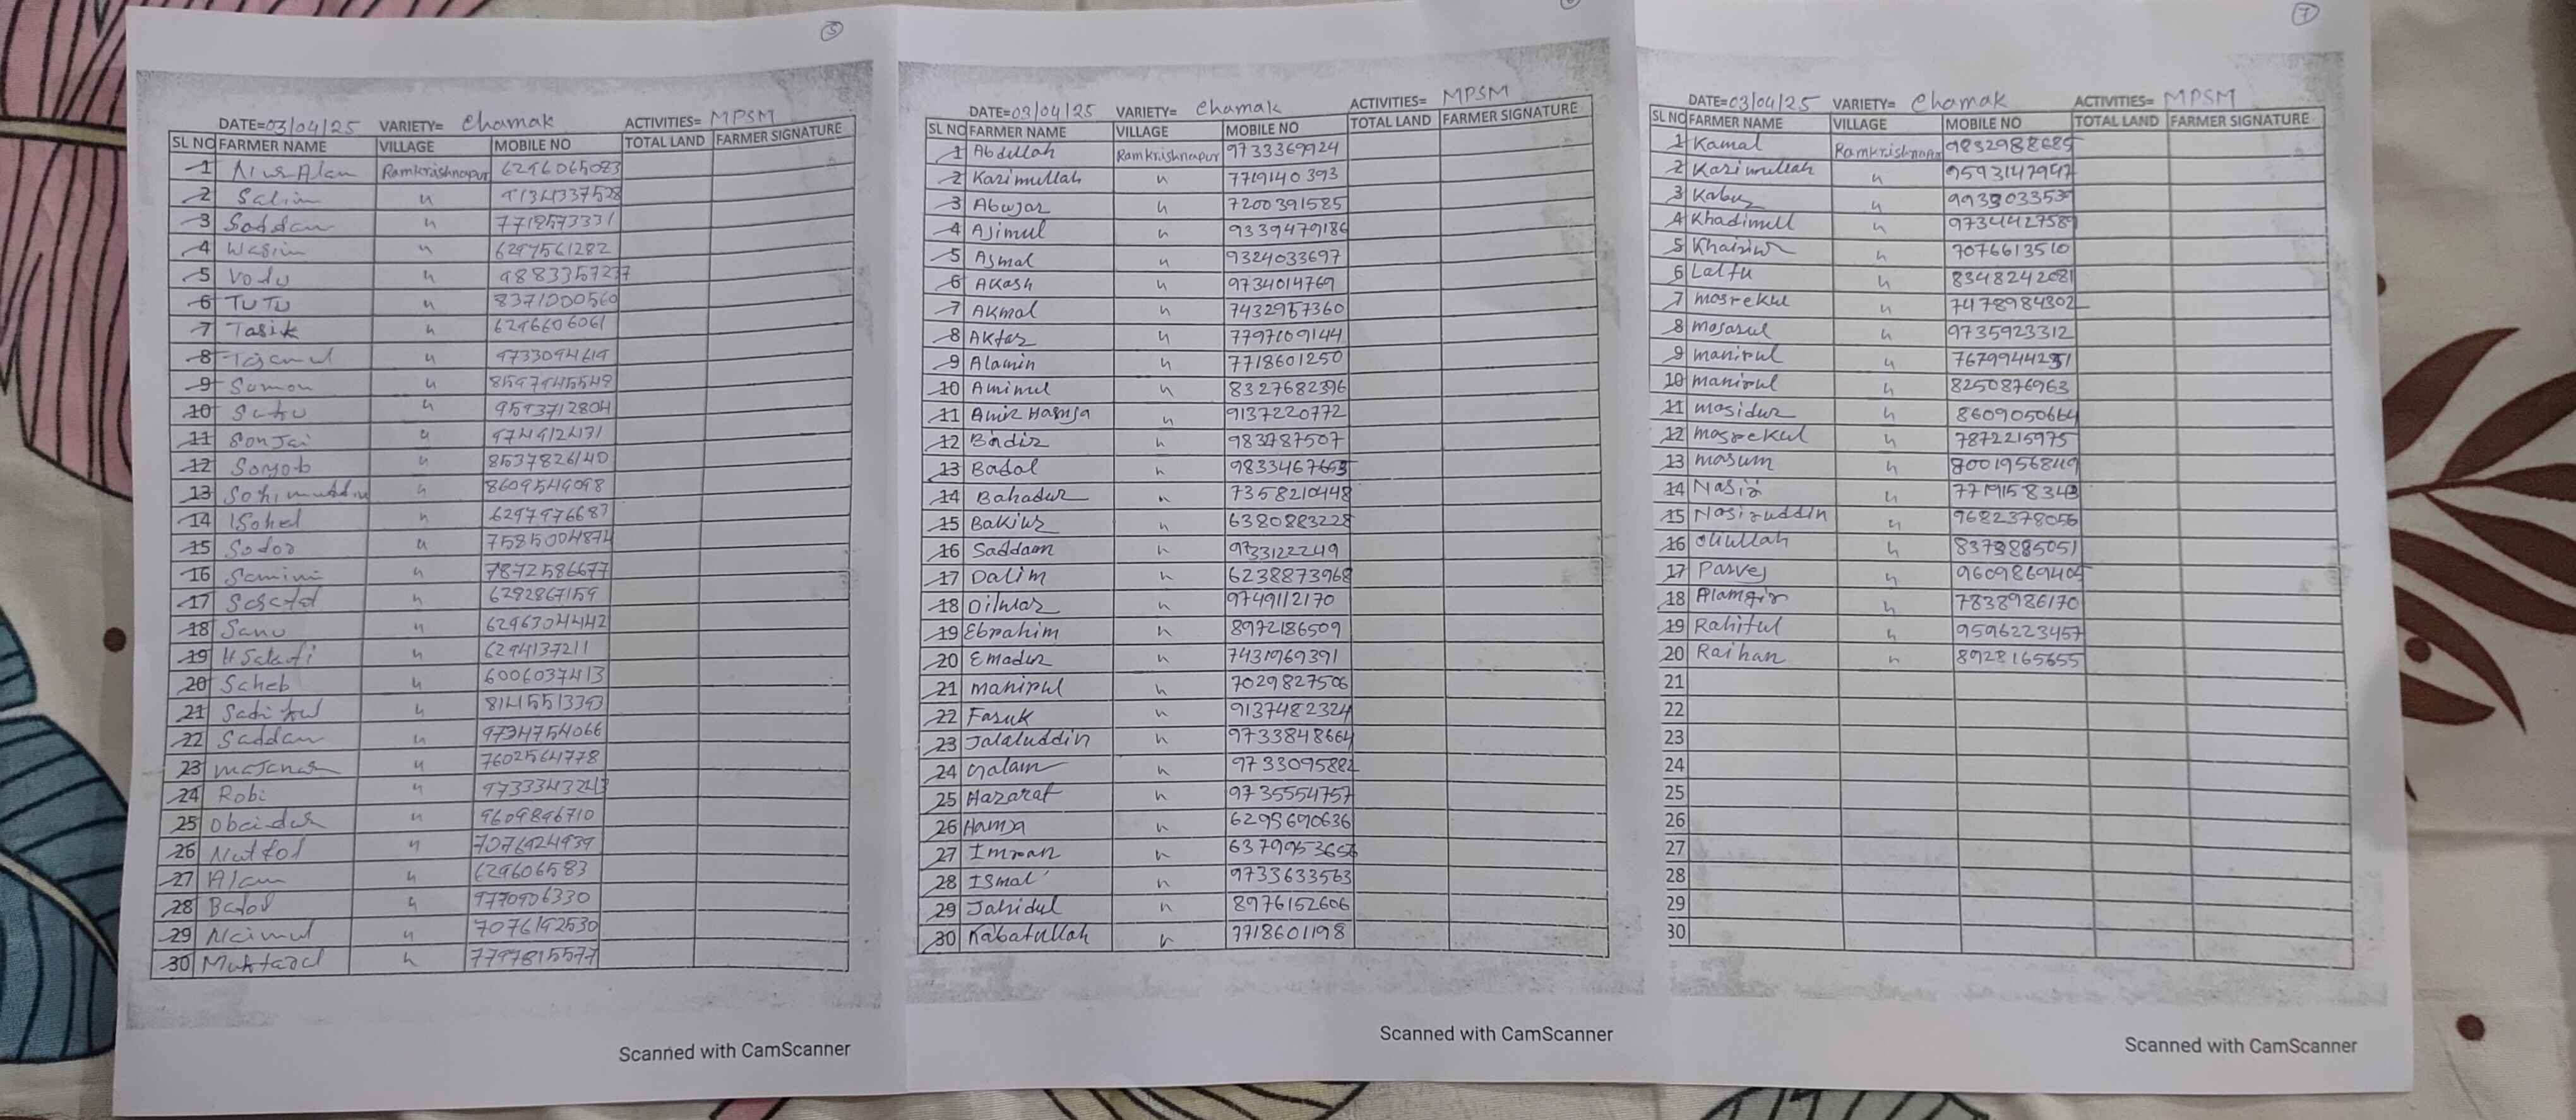 5
DATE=03/04/25 VARIETY= Chamak ACTIVITIES= MPSM
SL NO FARMER NAME VILLAGE MOBILE NO TOTAL LAND FARMER SIGNATURE
1 Nur Alam Ramkrishnapur 6296065083
2 Salim "
3 Saddam " 7718573331
4 Wasim " 6297561282
5 Vodu " 9883357277
6 TUTU " 8371000560
7 Tasik " 6296606061
8 Tajamul " 9733094619
9 Sumon " 8597945549
10 " 9593712804
11 Sonjai "
12 " 8537826140
13 " 8609549098
14 Sohel " 6297976687
15 Sodor " 7585004874
16 Samim " 7872586677
17 " 6282867159
18 Sanu " 6296304442
19 " 6294137211
20 Saheb " 6006037413
21 " 8145513393
22 Saddam " 9734754066
23 " 7602564778
24 Robi "
25 Obaidur " 9609896710
26 " 7076924939
27 Alam " 629606583
28 " 9770906330
29 " 7076192530
30 " 7797815577
Scanned with CamScanner
DATE=03/04/25 VARIETY= Chamak ACTIVITIES= MPSM
SL NO FARMER NAME VILLAGE MOBILE NO TOTAL LAND FARMER SIGNATURE
1 Abdullah Ramkrishnapur 9733369924
2 Kazimullah " 7719140393
3 Abujar " 7200391585
4 Ajimul " 9339479186
5 Ajmal " 9324033697
6 Akash " 9734014769
7 Akmal " 7432957360
8 Aktar " 7797609144
9 Alamin " 7718601250
10 Amimul " 8327682396
11 Amir Hamja " 9137220772
12 Badir " 983787507
13 Badal " 9833467653
14 Bahadur " 7358210448
15 Bakiur " 6380883228
16 Saddam " 9733122249
17 Dalim " 6238873968
18 Dilwar " 9749112170
19 Ebrahim " 8972186509
20 Emadur " 7431969391
21 manirul " 7029827506
22 Faruk " 9137482324
23 Jalaluddin " 9733848664
24 Galam " 9733095882
25 Hazarat " 9735554757
26 Hamja " 6295690636
27 Imran " 6379953656
28 Ismal " 9733633563
29 Jahidul " 8976152606
30 Kabatullah " 7718601198
Scanned with CamScanner
7
DATE=03/04/25 VARIETY= Chamak ACTIVITIES= MPSM
SL NO FARMER NAME VILLAGE MOBILE NO TOTAL LAND FARMER SIGNATURE
1 Kamal Ramkrishnapur 9832988685
2 Kazimullah " 9593147947
3 Kabuz " 9939033539
4 Khadimull " 9734427589
5 Khairiur " 7076613510
6 Laltu " 8348242081
7 mosrekul " 7478984302
8 mosarul " 9735923312
9 manirul " 7679944231
10 manirul " 8250876963
11 mosidur " 8609050664
12 mosrekul " 7872215975
13 masum " 8001956849
14 Nasir " 7719158343
15 Nasiruddin " 9682378056
16 Oliullah " 8373885051
17 Parvej " 9609869405
18 Alamgir " 7838986170
19 Rahiful " 9596223457
20 Raihan " 8928165655
21
22
23
24
25
26
27
28
29
30
Scanned with CamScanner